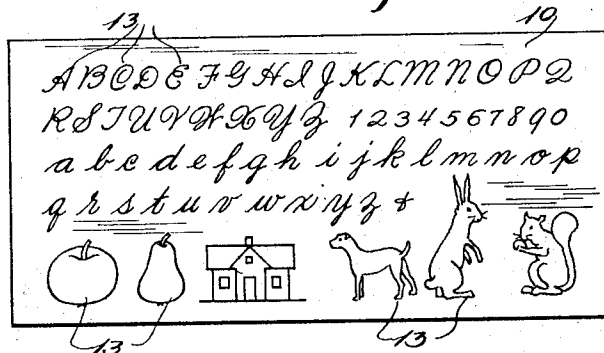 13 19
A B C D E F G H I J K L M N O P Q
R S T U V W X Y Z 1 2 3 4 5 6 7 8 9 0
a b c d e f g h i j k l m n o p
q r s t u v w x y z &
13 13